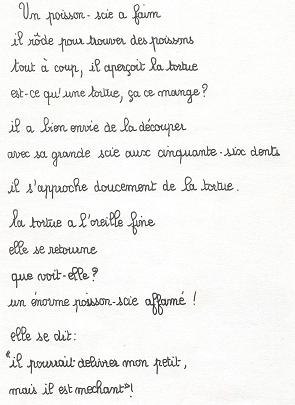 Un poisson-scie a faim
il rôde pour trouver des poissons
tout à coup, il aperçoit la tortue
est-ce qu'une tortue, ça ce mange?
il a bien envie de la découper
avec sa grande scie aux cinquante-six dents
il s'approche doucement de la tortue.
la tortue a l'oreille fine
elle se retourne
que voit-elle?
un énorme poisson-scie affamé !
elle se dit:
"il pourrait delivrer mon petit,
mais il est mechant"!